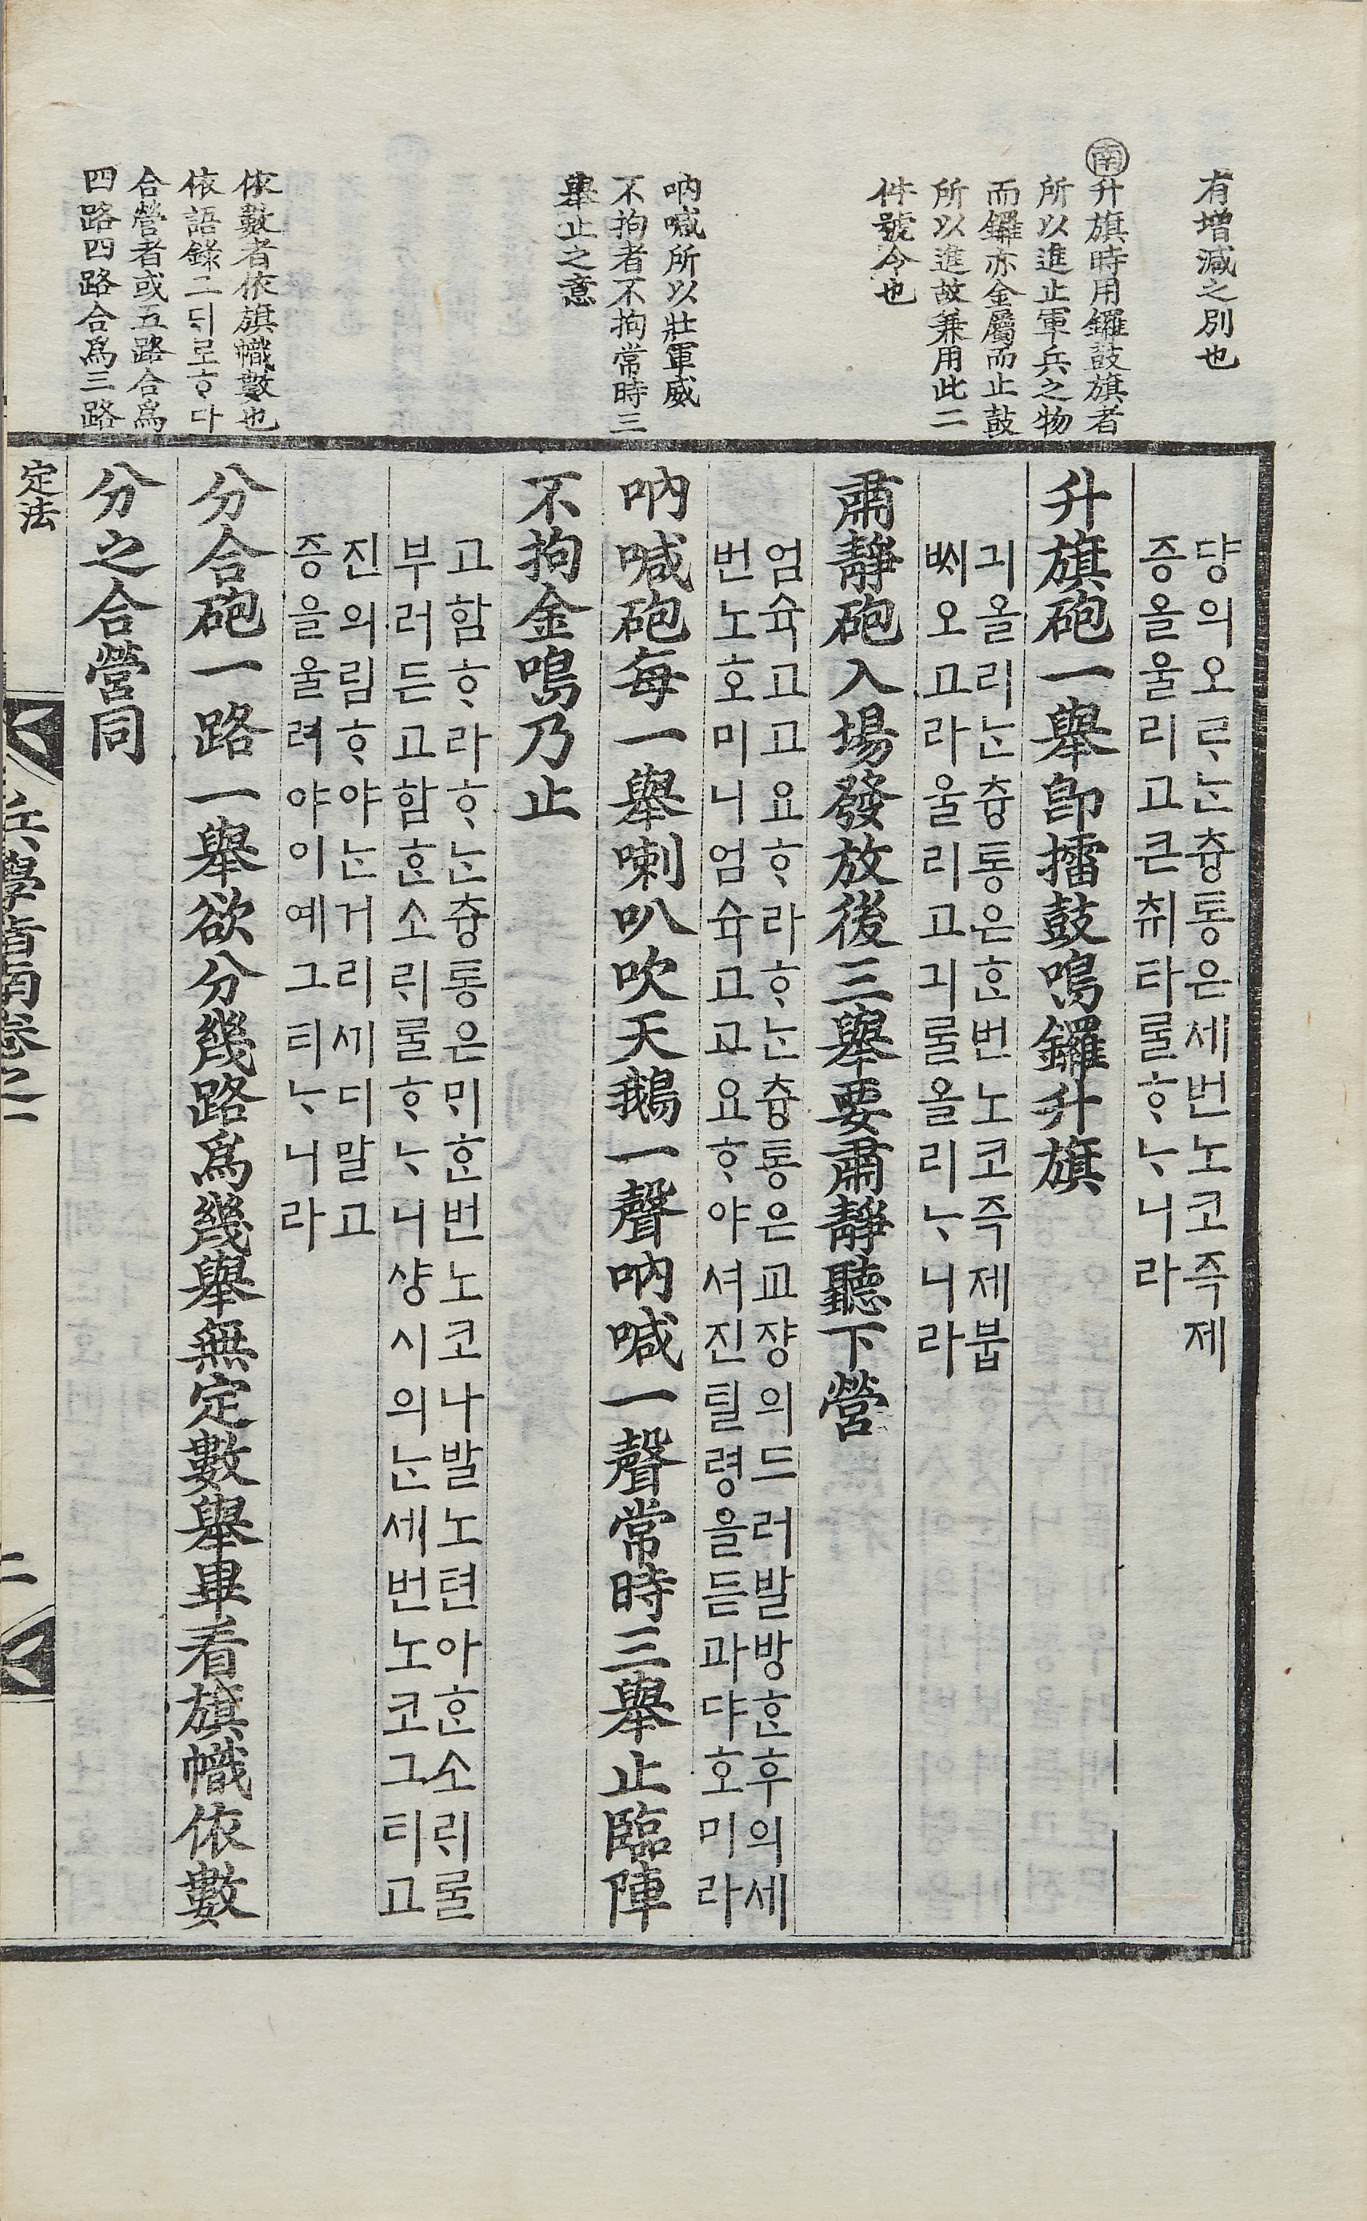 有增減之別也
南升旗時用鑼鼓旗者
所以進止軍兵之物
而鑼亦金屬而止鼓
所以進故兼用此二
件號令也
吶喊所以壯軍威
不拘者不拘常時三
舉止之意
依數者依旗幟數也
依語錄ᄀᆞ디로ᄒᆞ다
合營者或五路合爲
四路四路合爲三路
댱의오ᄅᆞᄂᆞᆫ츙통은세번노코즉제
증을울리고큰취타ᄅᆞᆯᄒᆞᄂᆞ니라
升旗砲一舉卽擂鼓鳴鑼升旗
긔올리ᄂᆞᆫ츙통은ᄒᆞᆫ번노코즉제붑
ᄧᅵ오고라울리고긔ᄅᆞᆯ올리ᄂᆞ니라
肅靜砲入場發放後三舉要肅靜聽下營
엄슉고고요ᄒᆞ라ᄒᆞᄂᆞᆫ츙통은교쟝의드러발방ᄒᆞᆫ후의세
번노호미니엄슉고고요ᄒᆞ야셔진틸령을듣과댜호미라
吶喊砲每一舉喇叭吹天鵝一聲吶喊一聲常時三舉止臨陣
不拘金鳴乃止
고함ᄒᆞ라ᄒᆞᄂᆞᆫ츙통은ᄆᆡᄒᆞᆫ번노코나발노텬아ᄒᆞᆫ소ᄅᆡᄅᆞᆯ
부러든고함ᄒᆞᆫ소ᄅᆡᄅᆞᆯᄒᆞᄂᆞ니샹시의ᄂᆞᆫ세번노코그티고
진의림ᄒᆞ야ᄂᆞᆫ거리세디말고
증을울려야이예그티ᄂᆞ니라
分合砲一路一舉欲分幾路爲幾舉無定數舉畢看旗幟依數
分之合營同
定法
兵學指南卷之一
二